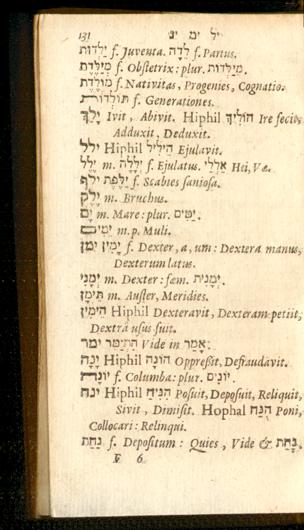 131 יל ימ ינ
יַלְדוּת f. Juventa. לֵדָה f. Partus.
מְיַלֶּדֶת f. Obſtetrix: plur. מְיַלְּדוֹת.
מוֹלֶדֶת f. Nativitas, Progenies, Cognatio.
תּוֹלְדוֹת f. Generationes.
יָלַךְ Ivit, Abivit. Hiphil הוֹלִיךְ Ire fecit,
Adduxit, Deduxit.
ילל Hiphil הֵילִיל Ejulavit.
יְלֵל m. יְלָלָה f. Ejulatus. אַלְלַי Hei, Væ.
ילף יַלֶּפֶת f. Scabies ſanioſa.
יֶלֶק m. Bruchus.
יָם m. Mare: plur. יַמִּים.
יֵמִים m. p. Muli.
ימן יָמִין f. Dexter, a, um: Dextera manus,
Dexterum latus.
יְמָנִי m. Dexter: fœm. יְמָנִית.
תֵּימָן m. Auſter, Meridies.
הֵימִין Hiphil Dexteravit, Dexteram petiit,
Dextrâ uſus fuit.
ימר הִתְיַמֵּר Vide in אָמַר.
יָנָה Hiphil הוֹנָה Oppreſſit, Defraudavit.
יוֹנָה f. Columba: plur. יוֹנִים.
ינח Hiphil הִנִּיחַ Poſuit, Depoſuit, Reliquit,
Sivit, Dimiſit. Hophal הֻנַּח Poni,
Collocari: Relinqui.
נַחַת f. Depoſitum: Quies, Vide & נָחַת.
F 6